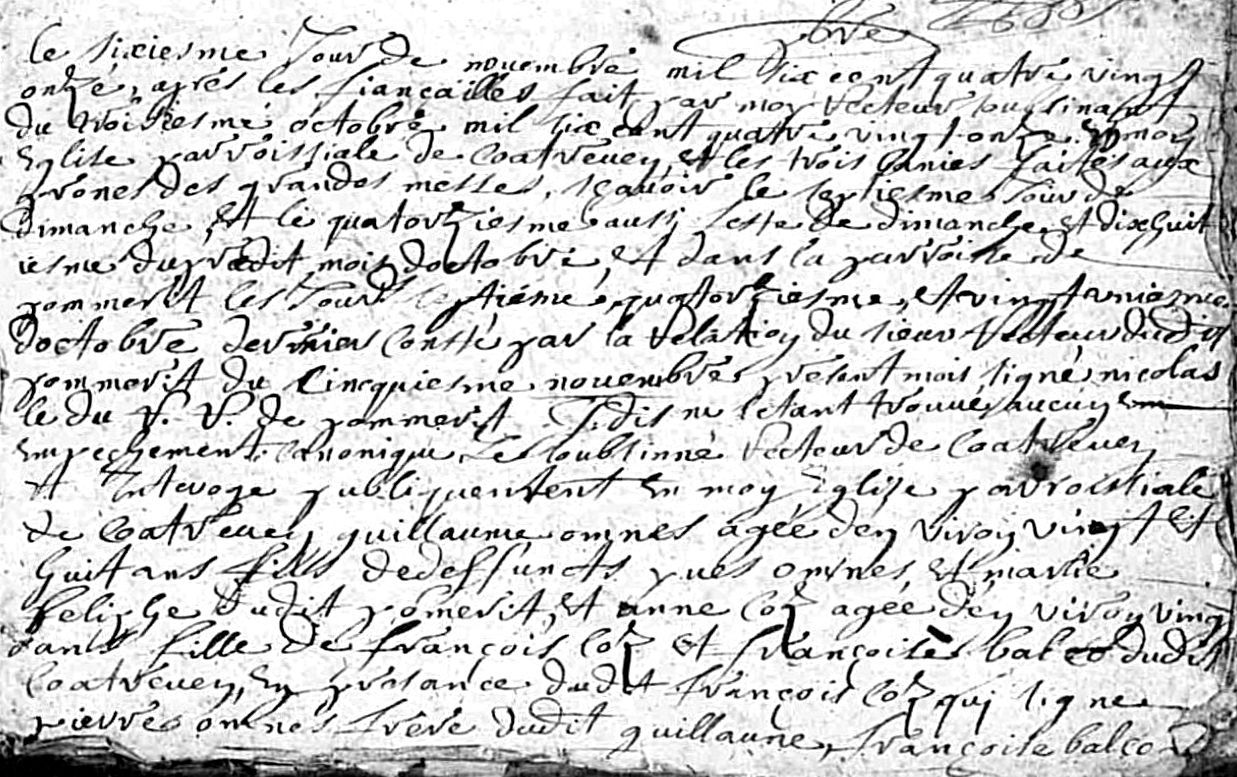 le sixiesme Jour de nouembre mil six cent quatre vingt
onze, apres les fiançailles fait par moy Recteur soubsinant
du troisiesme octobre mil six cent quatre vingt onze En moy
Eglise parroissiale de Coatreuen, et les trois banies faites aux
prones des grandes messes, sçauoir le septiesme Jour de
dimanche, et le quatorziesme aussi feste de dimanche, et dixhuit
iesme du predit mois doctobre, et dans la parroisse de
pommerit les Jours septiéme, quatorziesme, et vingt uniesme
doctobre dernier Consté par la Relation du sieur Recteur dudit
pommerit du Cincquiesme nouembre present mois, signé nicolas
le du V. R. de pommerit Jdis ne sétant trouué aucun
Empechement Canonique, Je soubsinné Recteur de Coatreuen
et Interoge publiquement En moy Eglize parroissiale
de Coatreuen guillaume omnes agée den Viron vingt et
huit ans fils de deffuncts yues omnes, et marie
felizhe dudit pomerit, et anne Coz agée den viron vingt
ans fille de françois Coz et françoise balco dudit
Coatreuen, En presance dudit françois Coz qui signe
pierre omnes frere dudit guillaume, françoise balco